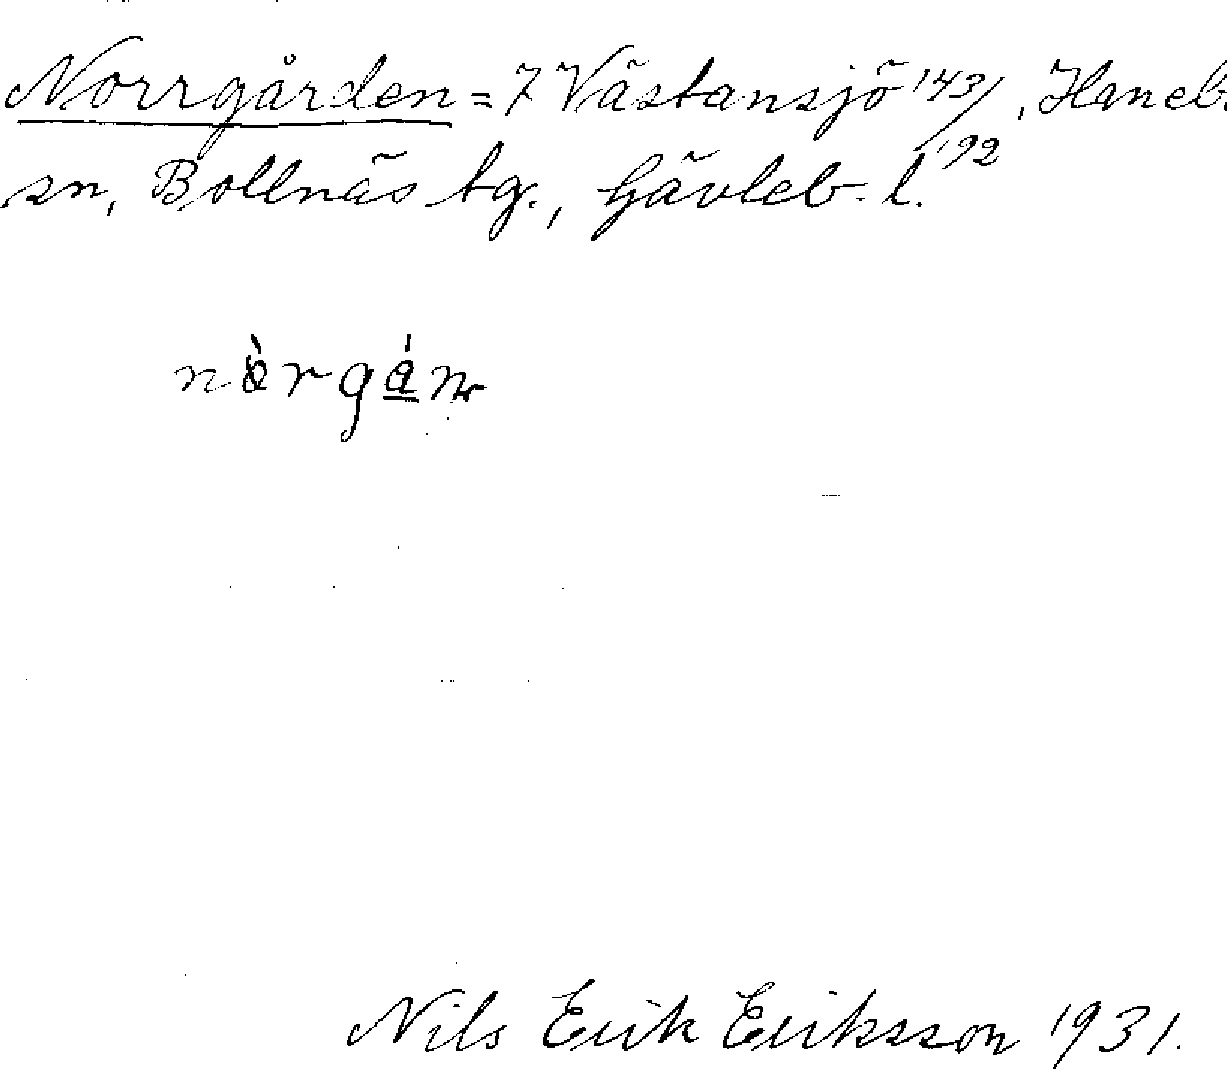 Norrgården = 7 Västansjö 143/192, Haneb.
sn, Bollnäs tg., Gävleb. l.
Nils Erik Eriksson 1931.